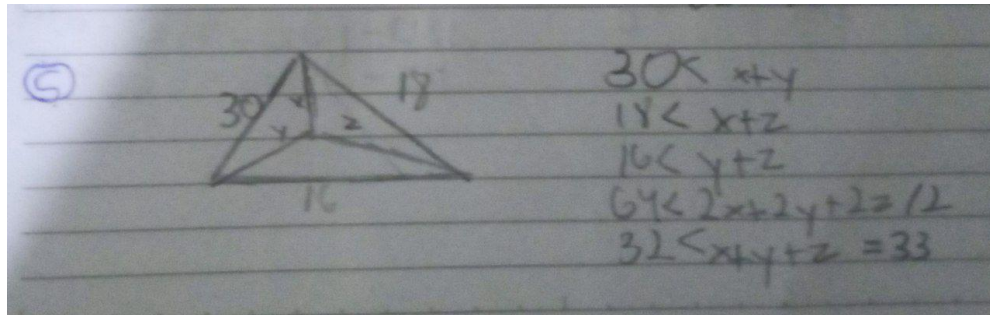 5
30
x
18
y
z
16
30< x+y
18< x+z
16< y+z
64< 2x+2y+2z /2
32<x+y+z =33